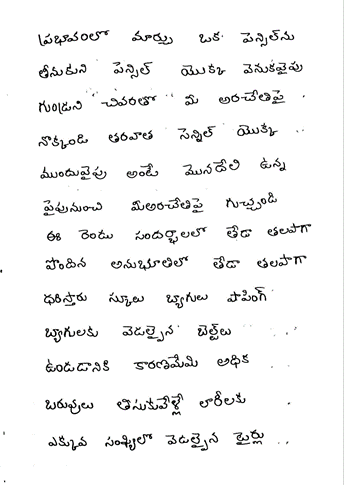 ప్రభావంలో మార్పు ఒక పెన్సిల్‌ను
తీసుకుని పెన్సిల్ యొక్క వెనుకవైపు
గుండ్రని చివరతో మీ అరచేతిపై
నొక్కండి తరవాత సెన్సిల్ యొక్క
ముందువైపు అంటే మొనదేలి ఉన్న
వైపునుంచి మీఅరచేతిపై గుచ్చండి
ఈ రెండు సందర్భాలలో తేడా తలపాగా
పొందిన అనుభూతిలో తేడా తలపాగా
ధరిస్తారు స్కూలు బ్యాగులు షాపింగ్
బ్యాగులకు వెడల్పైన బెల్ట్‌లు
ఉండడానికి కారణమేమి అధిక
బరువులు తీసుకువెళ్లే లారీలకు
ఎక్కువ సంఖ్యలో వెడల్పైన టైర్లు